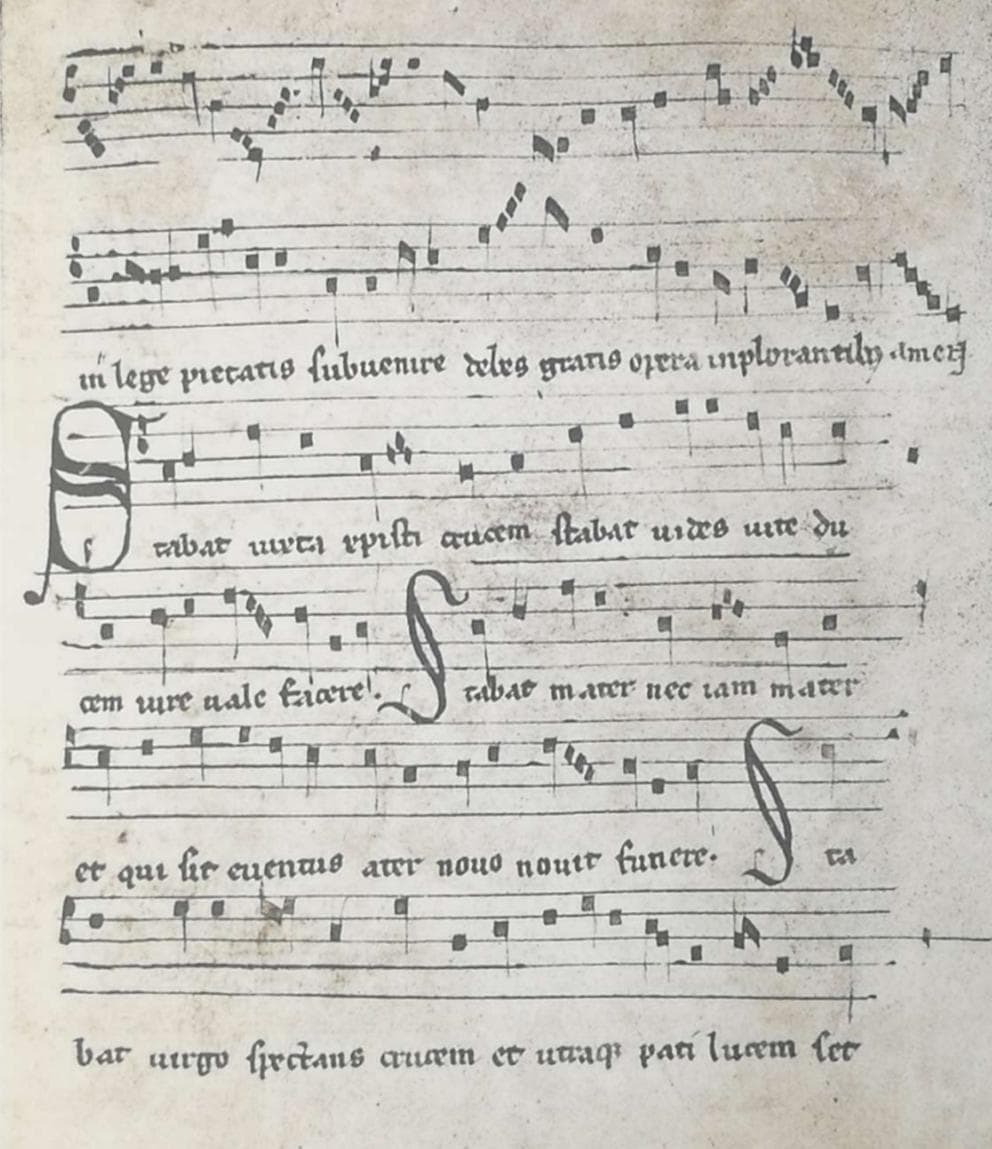 in lege pietatis subuenire deles gratis opera inplorantiby amen
S tabat iuxta xpisti crucem stabat uides uite du
cem uite uale facere. S tabat mater nec iam mater
et qui sit euentus ater nouo nouit funere. S ta
bat uirgo spectans crucem et utraqꝫ pati lucem set